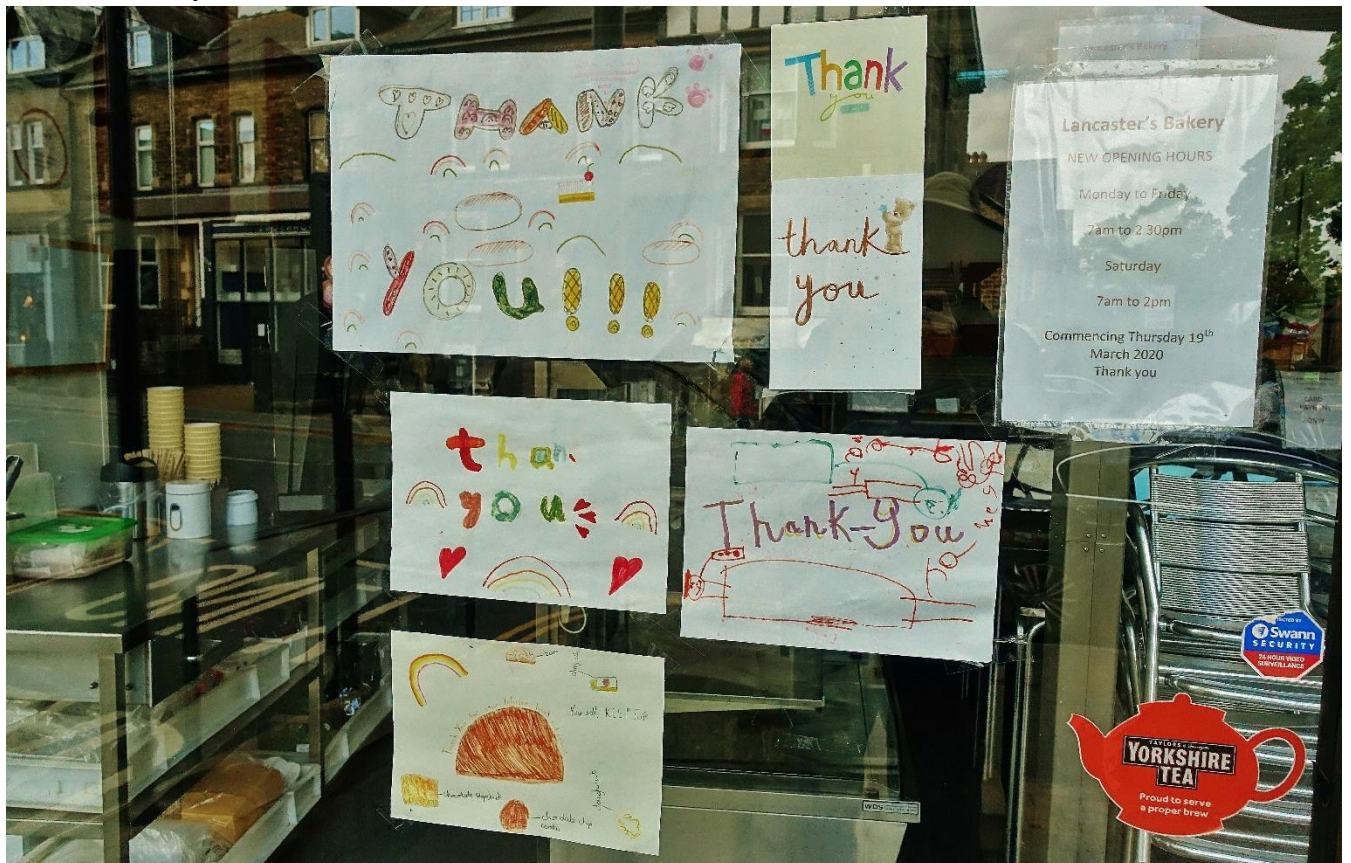 THANK
YOU!!!
Thank
you
thank
you
Lancaster's Bakery
NEW OPENING HOURS
Monday to Friday
7am to 2 30pm
Saturday
7am to 2pm
Commencing Thursday 19th
March 2020
Thank you
than
you
Thank-You
chocolate chip
cookie
doughnut
Swann
SECURITY
24 HOUR VIDEO
SURVEILLANCE
WDS
TAYLORS
YORKSHIRE
TEA
Proud to serve
a proper brew